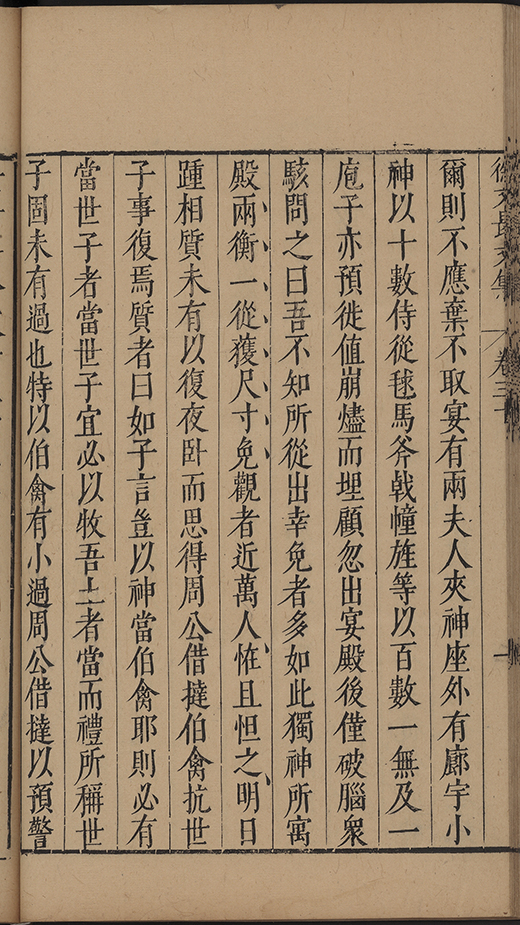 徐文長文集 卷三十
爾則不應棄不取宴有兩夫人夾神座外有廊宇小
神以十數侍從毬馬斧戟幢旌等以百數一無及一
庖子亦預徙值崩燼而埋顧忽出宴殿後僅破腦衆
駭問之曰吾不知所從出幸免者多如此獨神所寓
殿兩衡一從獲尺寸免觀者近萬人恠且怛之明日
踵相質未有以復夜卧而思得周公借撻伯禽抗世
子事復焉質者曰如子言豈以神當伯禽耶則必有
當世子者當世子宜必以牧吾土者當而禮所稱世
子固未有過也特以伯禽有小過周公借撻以預警